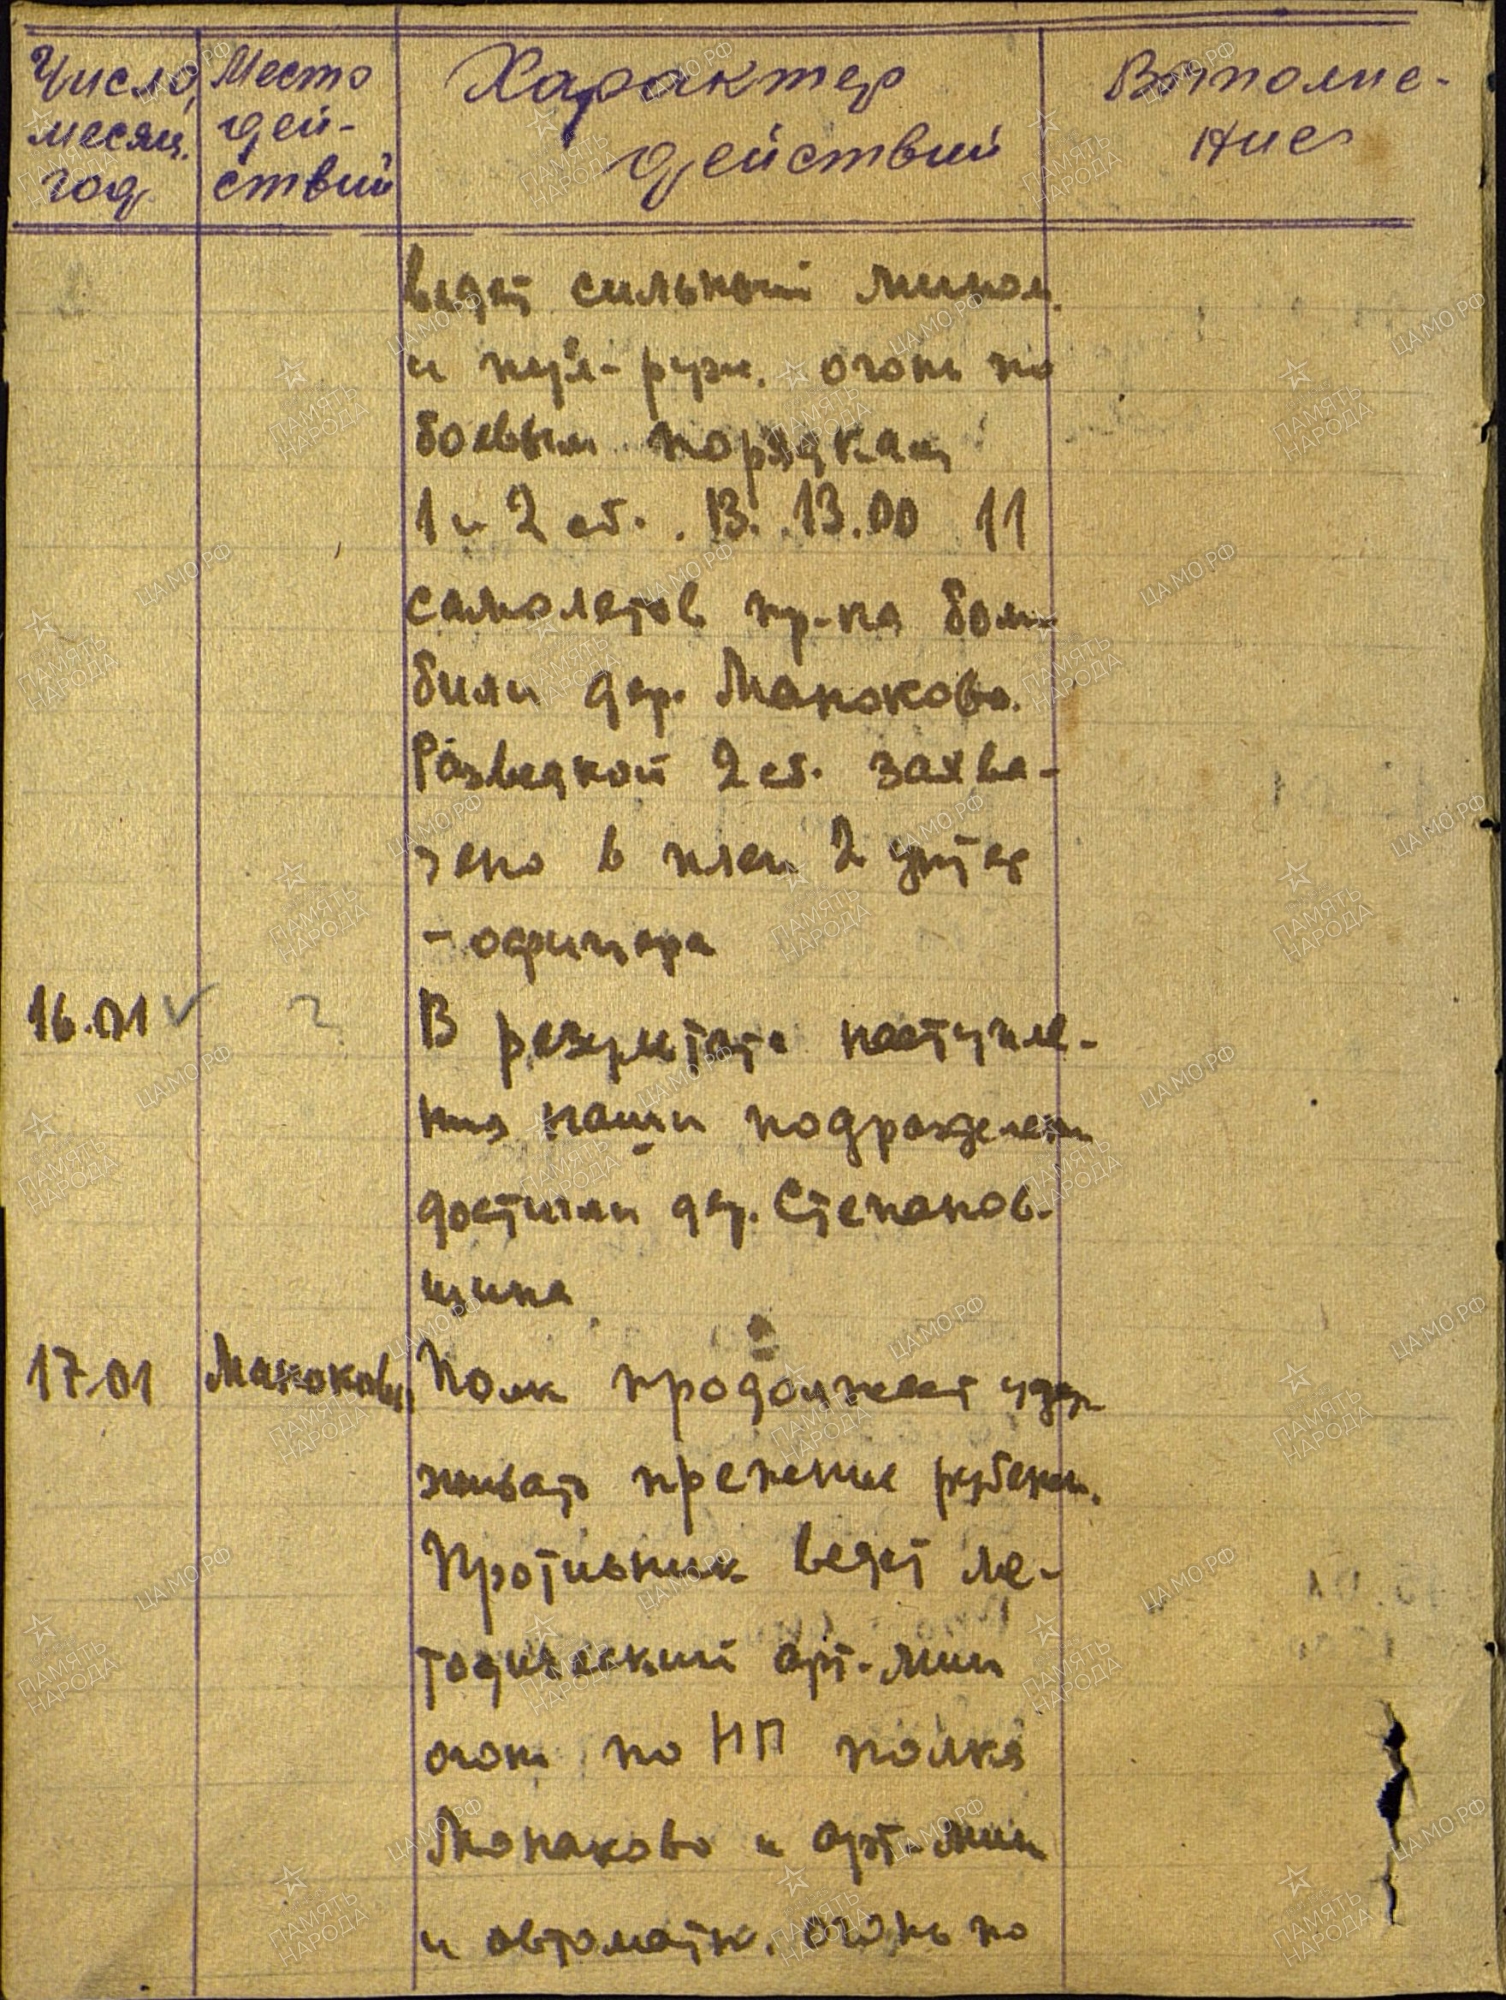 Число, месяц, год
Место дей-
ствий
Характер
действий
Выполне-
ние
ведет сильный мином.
и пул-руж. огонь по
боевым порядкам
1 и 2 сб. В 13.00 11
самолетов пр-ка бом-
били дер. Манаково.
Разведкой 2 сб. захва-
чено в плен 2 унтер
-офицера
16.01 В результате наступле-
ния наши подразделен
достигли дер. Степанов-
щина
17.01 Манаково Полк продолжает удер
живать прежние рубежи.
Противник ведет ме-
тодический арт-мин
огонь по НП полка
Манаково и арт-мин
и автоматн. огонь по